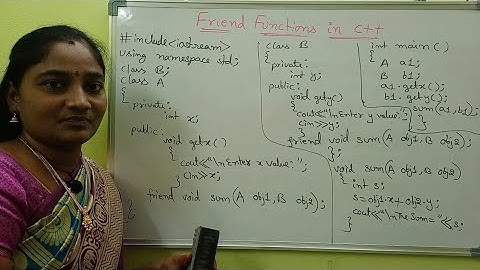 Friend Functions in C++
#include<iostream>
using namespace std;
class B;
class A
{
private:
int x;
public:
void getx()
{
cout<<"\nEnter x value:";
cin>>x;
}
friend void sum(A obj1, B obj2);
};
class B
{
private:
int y;
public:
void gety()
{
cout<<"\nEnter y value:";
cin>>y;
}
friend void sum(A obj1, B obj2);
};
void sum(A obj1, B obj2)
{
int s;
s=obj1.x+obj2.y;
cout<<"\nThe Sum="<<s;
}
int main()
{
A a1;
B b1;
a1.getx();
b1.gety();
sum(a1,b1);
}